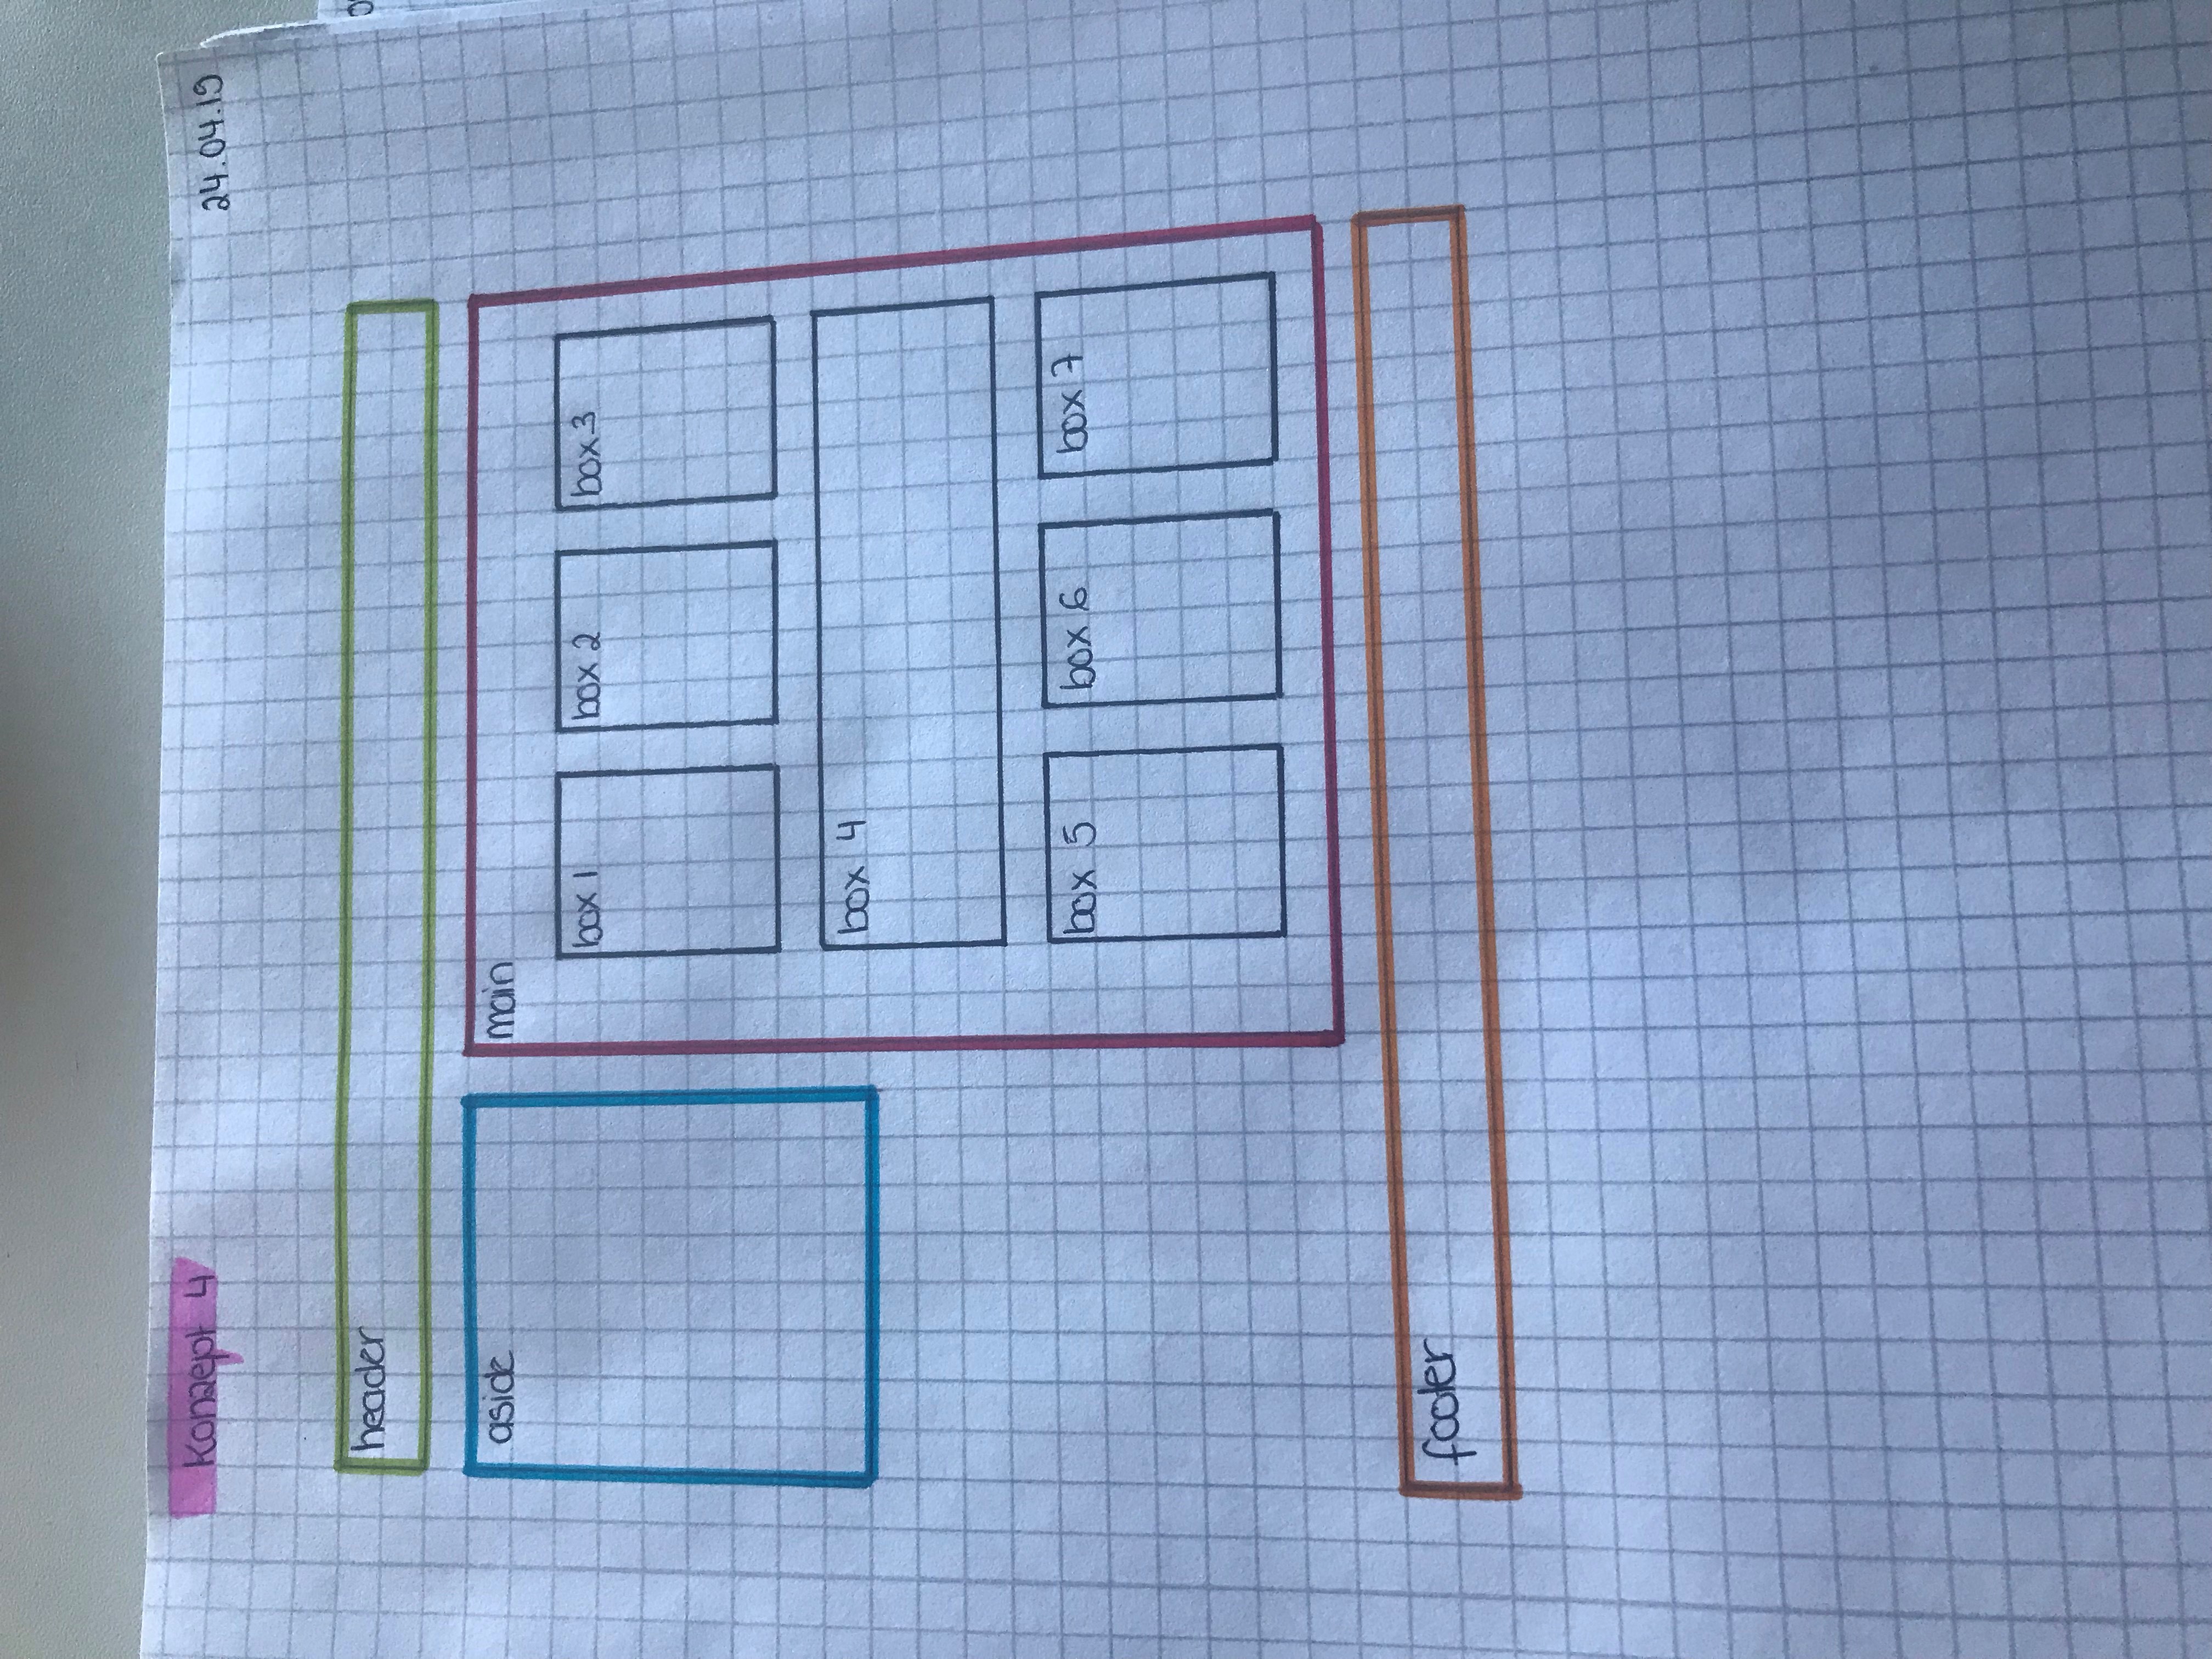 Konzept 4
24.04.19
header
aside
main
box 1
box 2
box 3
box 4
box 5
box 6
box 7
footer